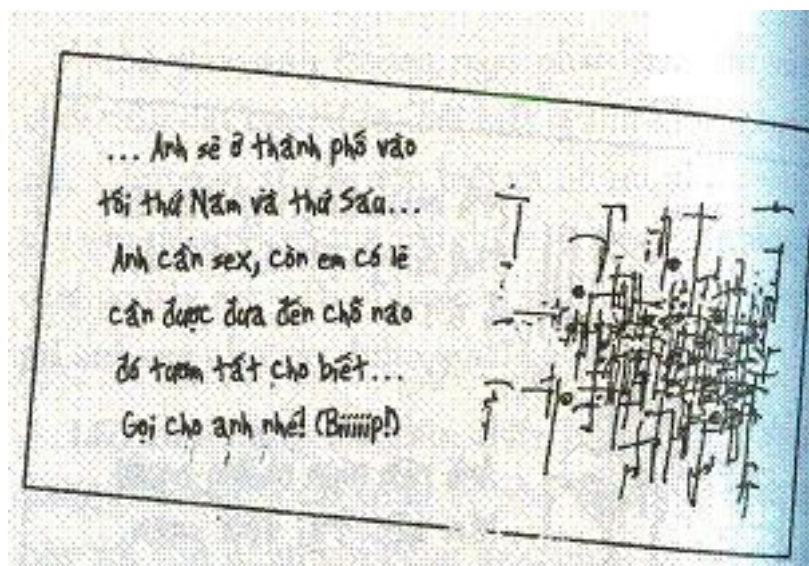 ... Anh sẽ ở thành phố vào
tối thứ Năm và thứ Sáu...
Anh cần sex, còn em có lẽ
cần được đưa đến chỗ nào
đó tươm tất cho biết...
Gọi cho anh nhé! (Biiiiip!)